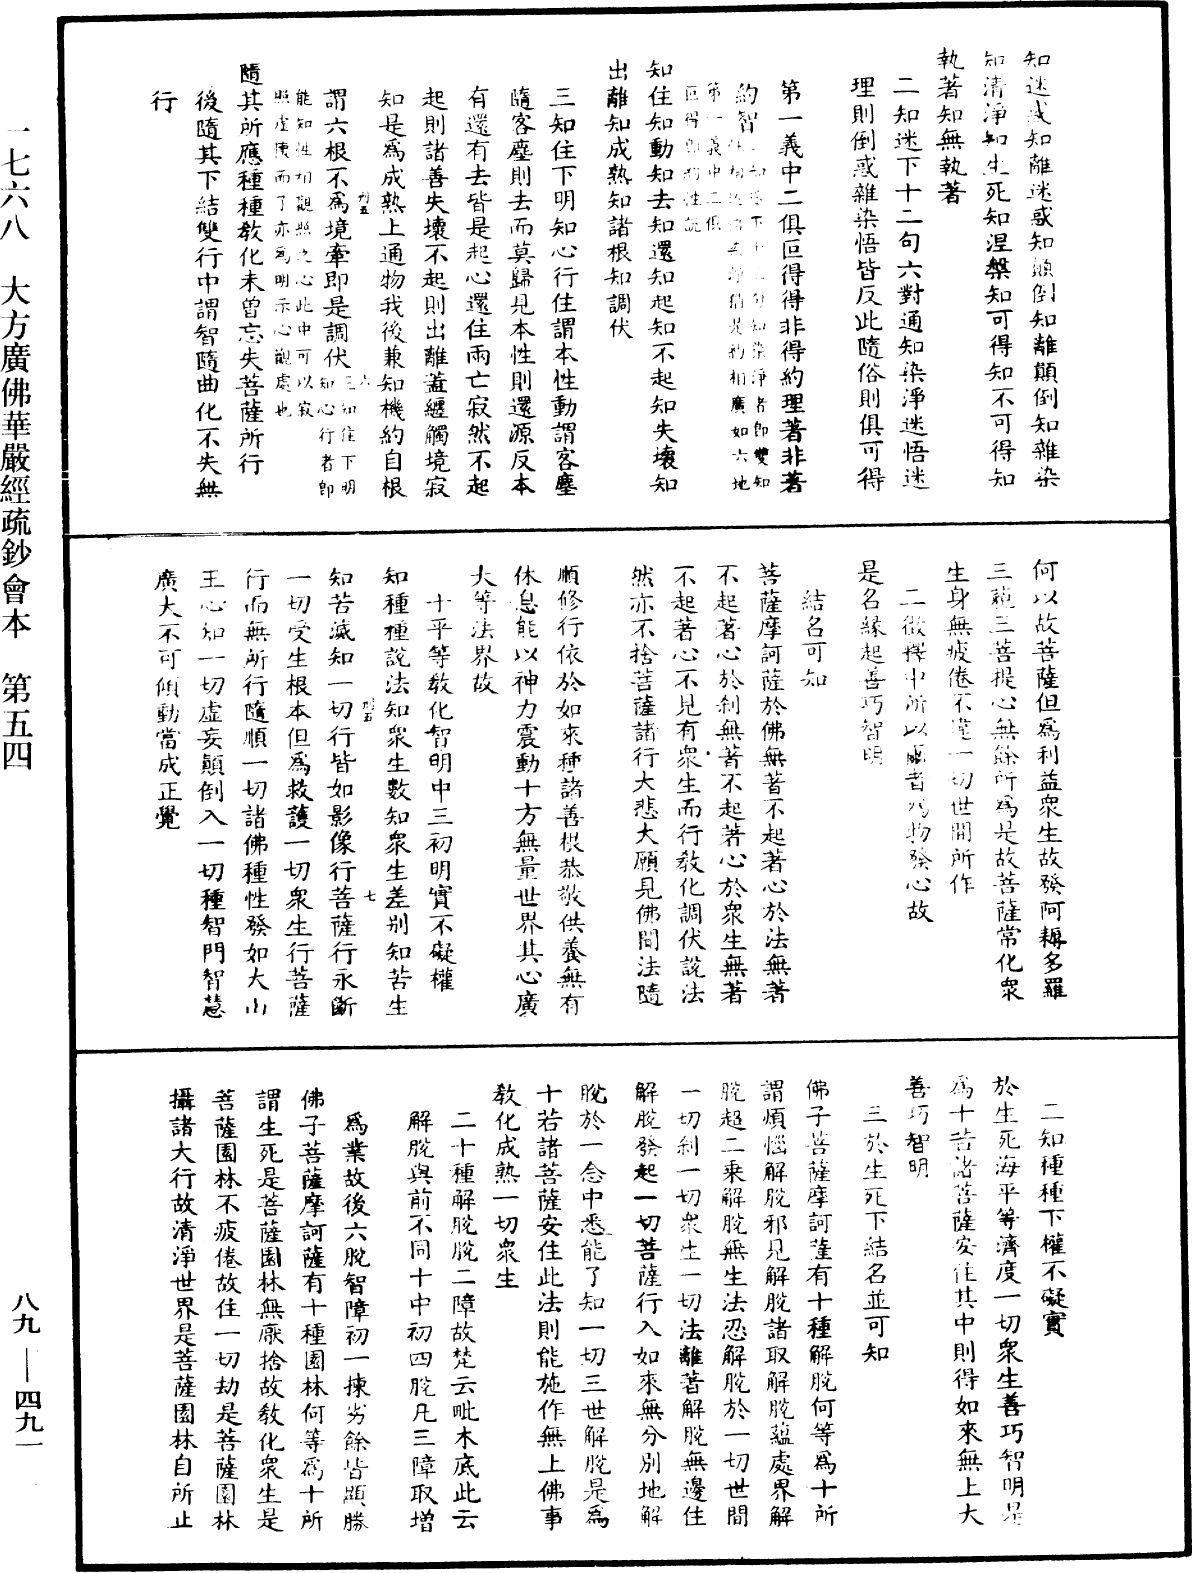 知迷惑知離迷惑知顛倒知離顛倒知雜染
知清淨知生死知涅槃知可得知不可得知
執著知無執著
二知迷下十二句六對通知染淨迷悟迷
理則倒惑雜染悟皆反此隨俗則俱可得
第一義中二俱叵得得非得約理著非著
約智
第一義中二俱
叵得即約性說
知住知動知去知還知起知不起知失壞知
出離知成熟知諸根知調伏
三知住下明知心行住謂本性動謂客塵
隨客塵則去而莫歸見本性則還源反本
有還有去皆是起心還住兩亡寂然不起
起則諸善失壞不起則出離蓋纏觸境寂
知是為成熟上通物我後兼知機約自根
謂六根不為境牽即是調伏三知住下明知心行者即
能知性相觀照之心此中可以寂
照虛陳而了亦為明示心觀處也
隨其所應種種教化未曾忘失菩薩所行
後隨其下結雙行中謂智隨曲化不失無
行
何以故菩薩但為利益眾生故發阿耨多羅
三藐三菩提心無餘所為是故菩薩常化眾
生身無疲倦不違一切世間所作
二徵釋中所以爾者為物發心故
是名緣起善巧智明
結名可知
菩薩摩訶薩於佛無著不起著心於法無著
不起著心於剎無著不起著心於眾生無著
不起著心不見有眾生而行教化調伏說法
然亦不捨菩薩諸行大悲大願見佛聞法隨
順修行依於如來種諸善根恭敬供養無有
休息能以神力震動十方無量世界其心廣
大等法界故
十平等教化智明中三初明實不礙權
知種種說法知眾生數知眾生差別知苦生
知苦滅知一切行皆如影像行菩薩行永斷
一切受生根本但為救護一切眾生行菩薩
行而無所行隨順一切諸佛種性發如大山
王心知一切虛妄顛倒入一切種智門智慧
廣大不可傾動當成正覺
二知種種下權不礙實
於生死海平等濟度一切眾生善巧智明是
為十若諸菩薩安住其中則得如來無上大
善巧智明
三於生死下結名並可知
佛子菩薩摩訶薩有十種解脫何等為十所
謂煩惱解脫邪見解脫諸取解脫蘊處界解
脫超二乘解脫無生法忍解脫於一切世間
一切剎一切眾生一切法離著解脫無邊住
解脫發起一切菩薩行入如來無分別地解
脫於一念中悉能了知一切三世解脫是為
十若諸菩薩安住此法則能施作無上佛事
教化成熟一切眾生
二十種解脫脫二障故梵云毗木底此云
解脫與前不同十中初四脫凡三障取增
為業故後六脫智障初一揀劣餘皆顯勝
佛子菩薩摩訶薩有十種園林何等為十所
謂生死是菩薩園林無厭捨故教化眾生是
菩薩園林不疲倦故住一切劫是菩薩園林
攝諸大行故清淨世界是菩薩園林自所止
一七六八　大方廣佛華嚴經疏鈔會本　第五四
八九—四九一